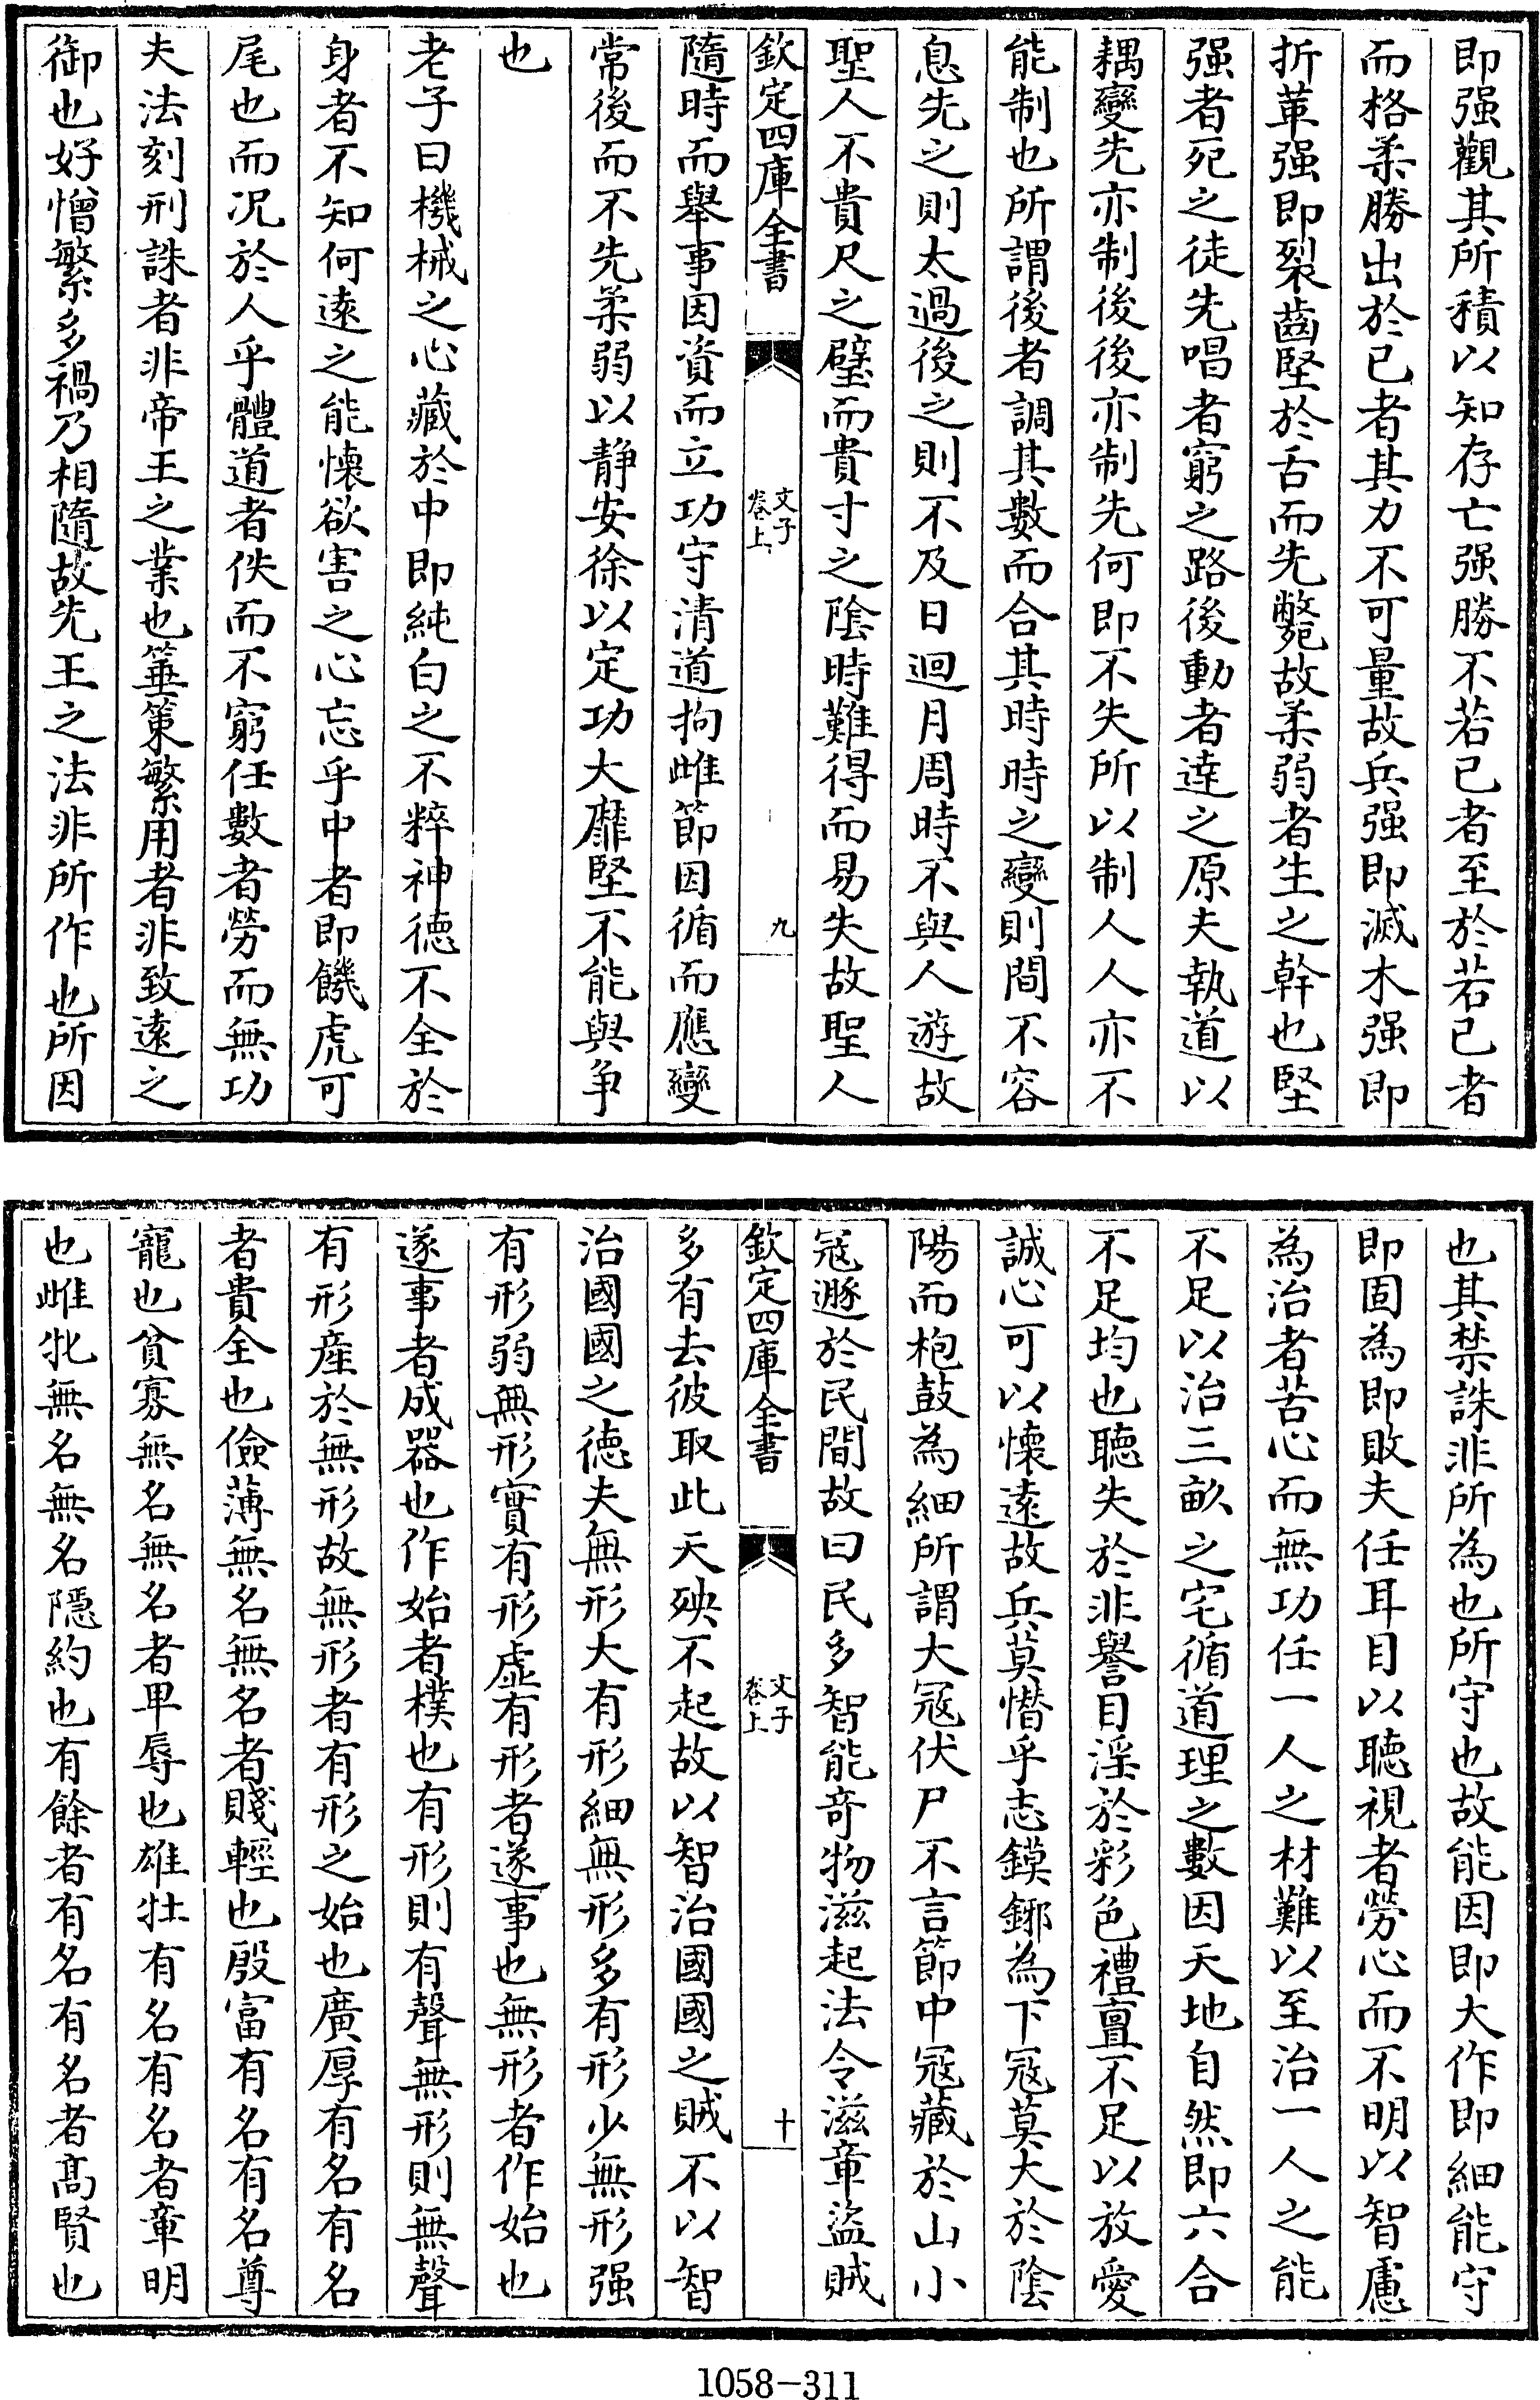 即强觀其所積以知存亡强勝不若已者至於若已者
而格柔勝出於已者其力不可量故兵强即滅木强即
折革强即裂齒堅於舌而先斃故柔弱者生之幹也堅
强者死之徒先唱者窮之路後動者逹之原夫執道以
耦變先亦制後後亦制先何即不失所以制人人亦不
能制也所謂後者調其數而合其時時之變則間不容
息先之則太過後之則不及日迴月周時不與人遊故
聖人不貴尺之璧而貴寸之陰時難得而易失故聖人
欽定四庫全書 文子 卷上 九
隨時而舉事因資而立功守清道拘雌節因循而應變
常後而不先柔弱以静安徐以定功大靡堅不能與争
也
老子曰機械之心藏於中即純白之不粹神徳不全於
身者不知何逺之能懷欲害之心忘乎中者即饑虎可
尾也而况於人乎體道者佚而不窮任數者勞而無功
夫法刻刑誅者非帝王之業也箠策繁用者非致逺之
御也好憎繁多禍乃相隨故先王之法非所作也所因
也其禁誅非所為也所守也故能因即大作即細能守
即固為即敗夫任耳目以聴視者勞心而不明以智慮
為治者苦心而無功任一人之材難以至治一人之能
不足以治三畝之宅循道理之數因天地自然即六合
不足均也聴失於非譽目淫於彩色禮亶不足以放愛
誠心可以懷逺故兵莫憯乎志鏌鋣為下冦莫大於陰
陽而枹鼓為細所謂大冦伏尸不言節中冦藏於山小
冦遯於民間故曰民多智能奇物滋起法令滋章盜賊
欽定四庫全書 文子 卷上 十
多有去彼取此天殃不起故以智治國國之賊不以智
治國國之徳夫無形大有形細無形多有形少無形强
有形弱無形實有形虚有形者遂事也無形者作始也
遂事者成器也作始者樸也有形則有聲無形則無聲
有形産於無形故無形者有形之始也廣厚有名有名
者貴全也儉薄無名無名者賤輕也殷富有名有名尊
寵也貧寡無名無名者卑辱也雄牡有名有名者章明
也雌牝無名無名隱約也有餘者有名有名者髙賢也
1058-311